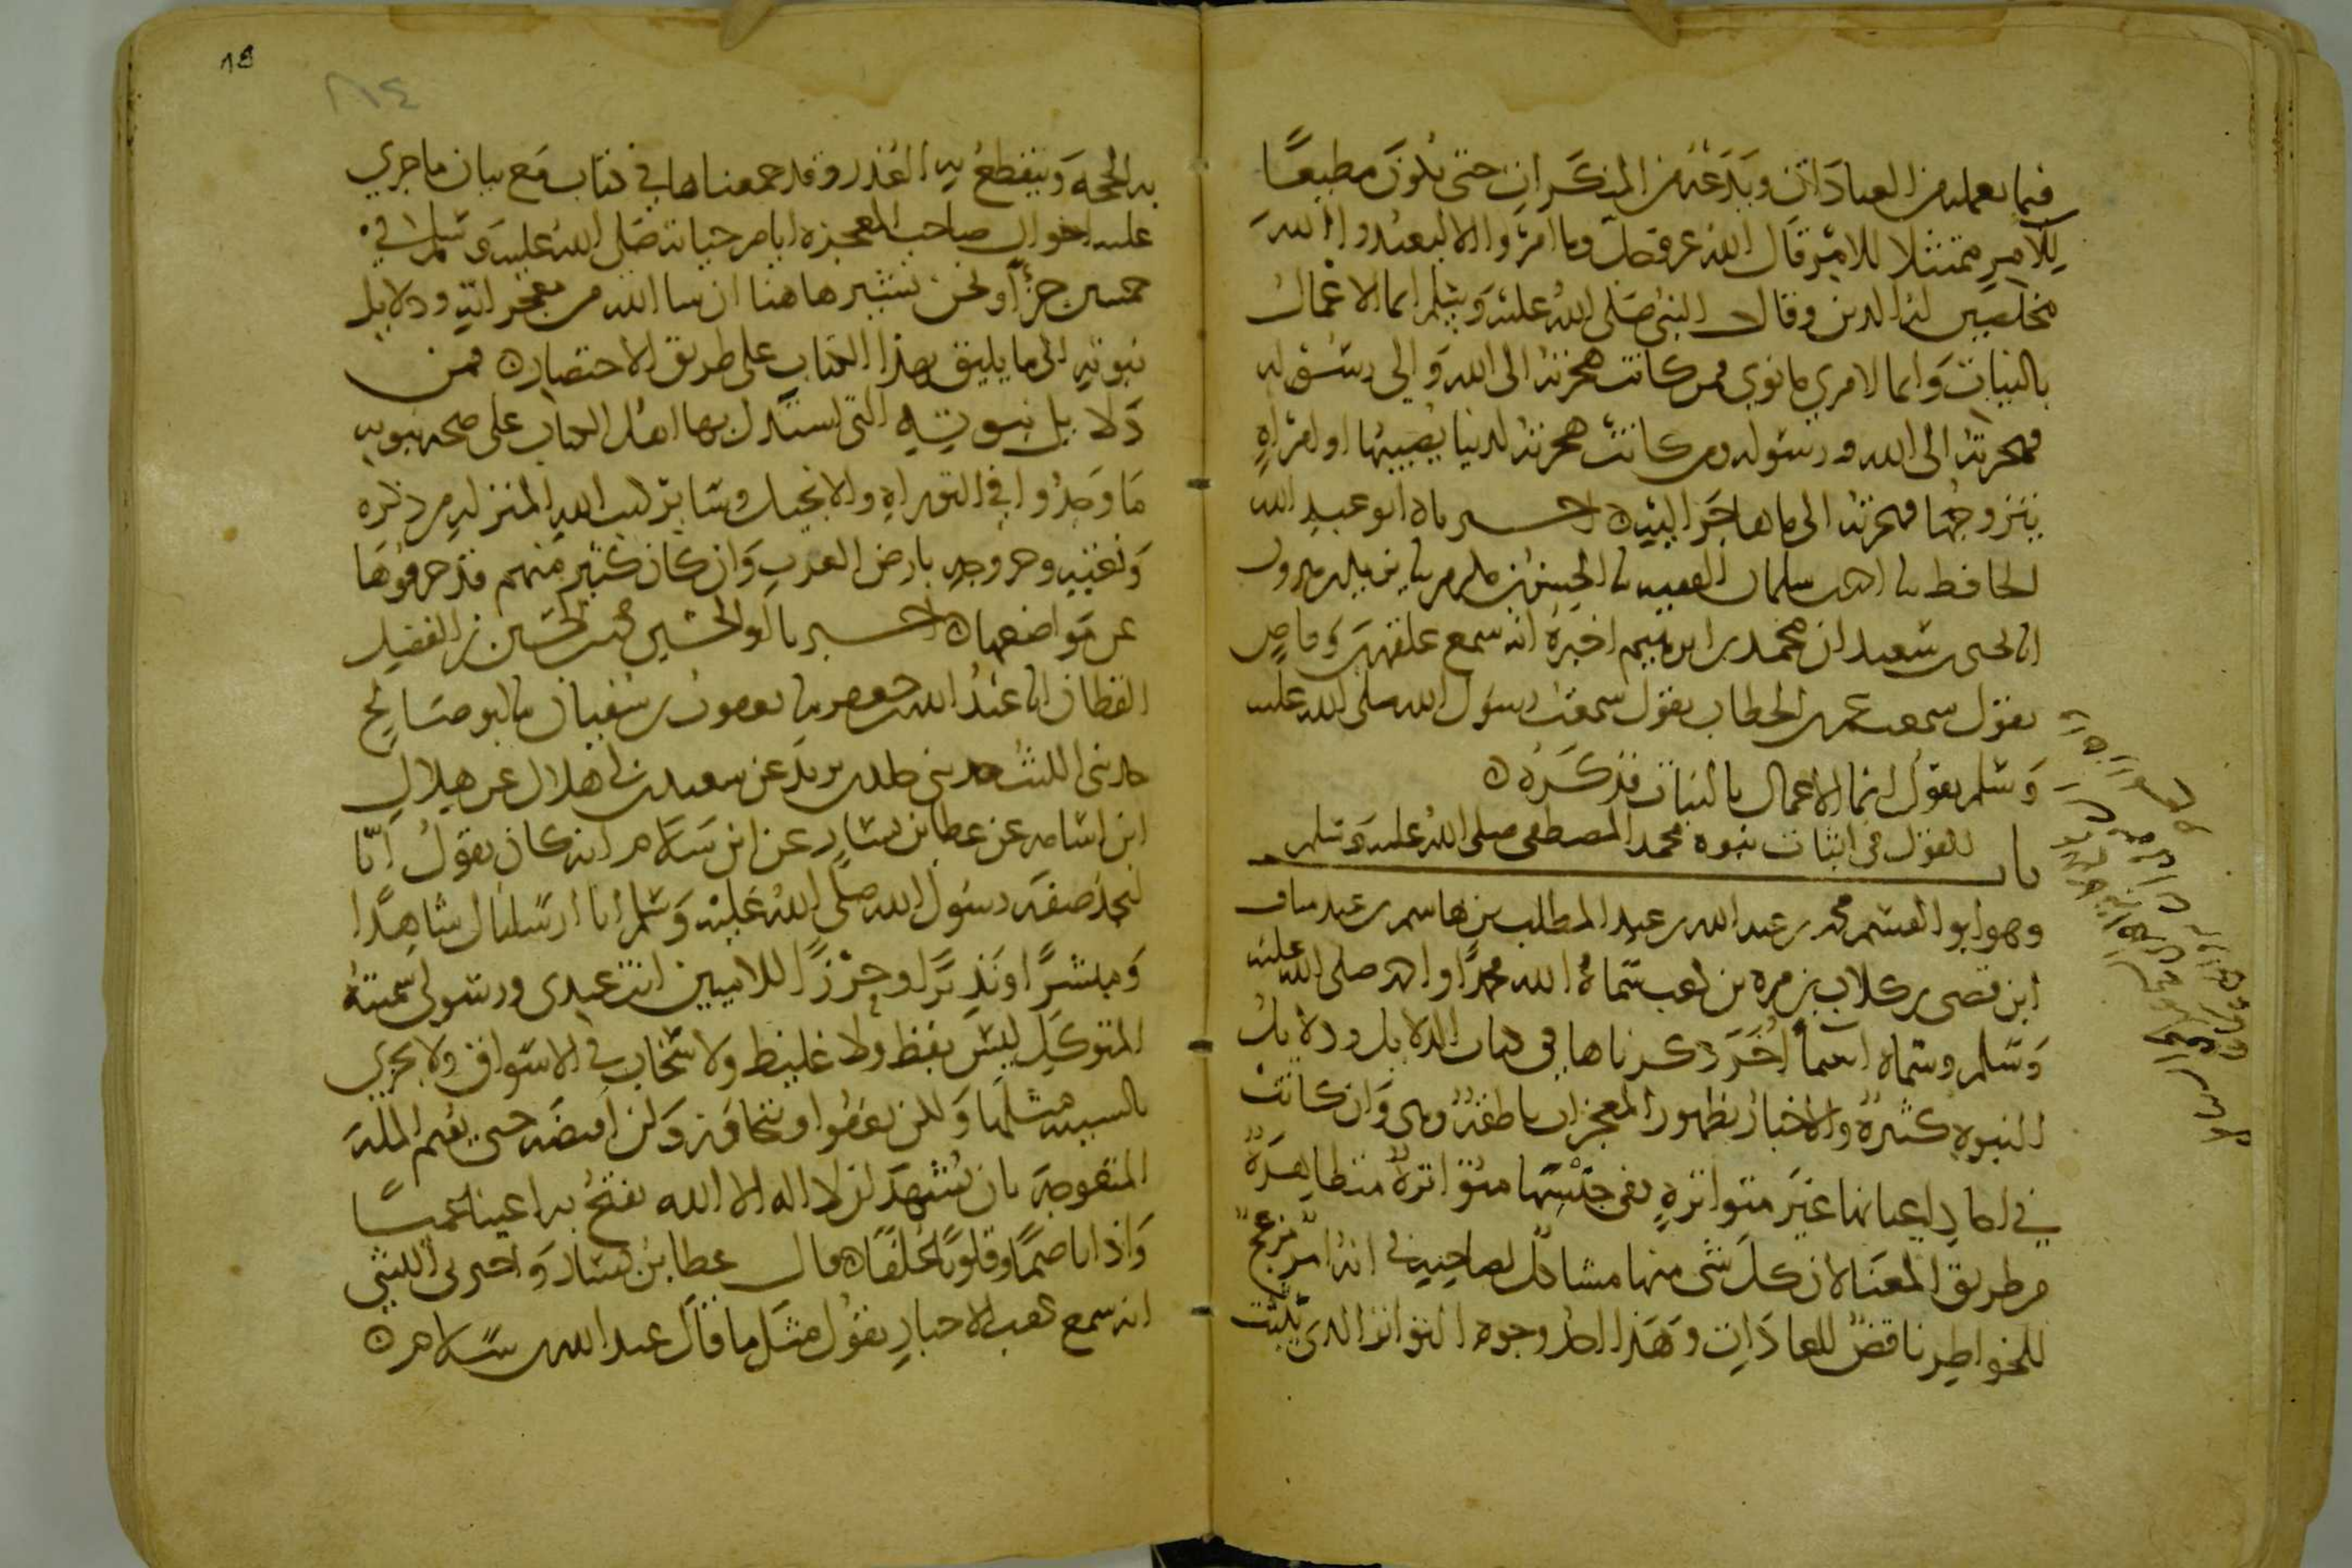 فيما يعمله من العبادات ويدعه من المنكرات حتى يكون مطيعا
للآمر ممتثلا للامر قال الله عز وجل وما امروا الا ليعبدوا الله
مخلصين له الدين وقال النبي صلى الله عليه وسلم انما الاعمال
بالنيات وانما لامرئ ما نوى فمن كانت هجرته الى الله والى رسوله
فهجرته الى الله ورسوله ومن كانت هجرته لدنيا يصيبها او امراة
يتزوجها فهجرته الى ما هاجر اليه ٥ اخبرناه ابو عبد الله
الحافظ نا احمد بن سلمان الفقيه نا الحسن بن مكرم نا يزيد بن هرون
انا يحيى بن سعيد ان محمد بن ابراهيم اخبره انه سمع علقمة بن وقاص
يقول سمعت عمر بن الخطاب يقول سمعت رسول الله صلى الله عليه
وسلم يقول انما الاعمال بالنيات فذكره ٥
باب القول في اثبات نبوة محمد المصطفى صلى الله عليه وسلم
وهو ابو القسم محمد بن عبد الله بن عبد المطلب بن هاشم بن عبد مناف
ابن قصي بن كلاب بن مرة بن كعب سماه الله محمدا واحمد صلى الله عليه
وسلم وسماه اسماً اُخَر ذكرناها في كتاب الدلايل ودلايل
النبوة كثيرة والاخبار بظهور المعجزات ناطقة وهي وان كانت
في احاد اعيانها غير متواترة ففي جنسها متواترة متظاهرة
من طريق المعنا لان كل شي منها مشاكل لصاحبه في انه امر مزعج
للخواطر ناقض للعادات وهذا احد وجوه التواتر الذي يثبت
به الحجة وينقطع به العذر وقد جمعناها في كتاب مع بيان ما جرى
عليه احوال صاحب المعجزة ايام حياته صلى الله عليه وسلم في
خمسين جزأً ونحن نشير هاهنا ان شا الله من معجزاته ودلايل
نبوته الى ما يليق بهذا الكتاب على طريق الاختصار ٥ فمن
دلايل نبوته التي استدل بها اهل الكتاب على صحة نبوته
ما وجدوا في التوراة والانجيل وساير كتب الله المنزلة من ذكره
ونعته وخروجه بارض العرب وان كان كثير منهم قد حرفوها
عن مواضعها ٥ اخبرنا ابو الحسين محمد بن الحسين بن الفضل
القطان انا عبد الله بن جعفر نا يعقوب بن سفيان نا ابو صالح
حدثني الليث حدثني خالد بن يزيد عن سعيد بن ابي هلال عن هلال
ابن اسامة عن عطا بن يسار عن ابن سلام انه كان يقول انا
لنجد صفة رسول الله صلى الله عليه وسلم انا ارسلناك شاهدا
ومبشرا ونذيرا وحرزا للاميين انت عبدي ورسولي سميته
المتوكل ليس بفظ ولا غليظ ولا سخاب في الاسواق ولا يجزي
بالسيئة مثلها ولكن يعفوا ويتجاوز ولن اقبضه حتى يقيم الملة
المتعوجة بان يشهد ان لا اله الا الله يفتح به اعينا عميا
واذانا صما وقلوبا غلفا ٥ قال عطا بن يسار واخبرني الليثي
انه سمع كعب الاحبار يقول مثل ما قال عبد الله بن سلام ٥
٨٤